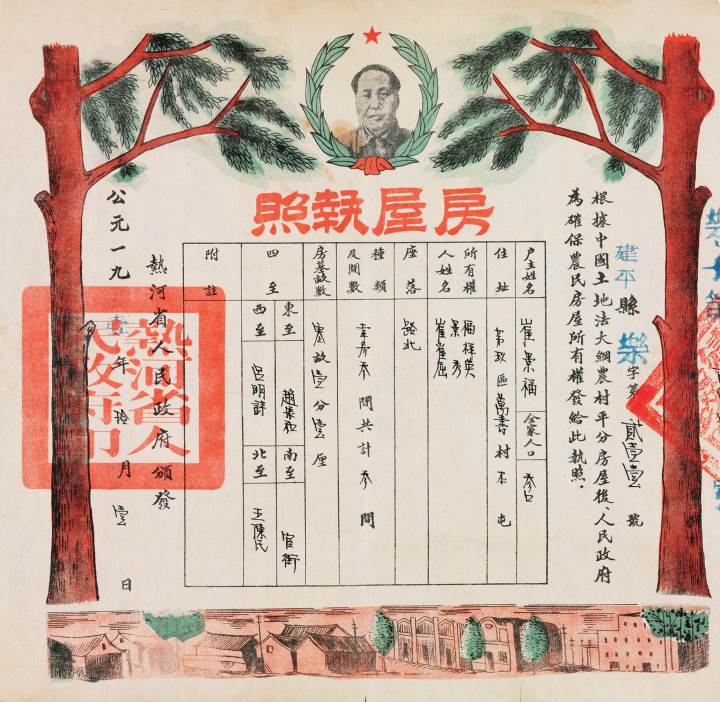 房屋執照
根據中國土地法大綱農村平分房屋後、人民政府
為確保農民房屋所有權發給此執照。
建平縣 樂 字第 貳壹壹 號
戶主姓名 崔景福 全家人口 叁口
住址 第玖區萬壽村本屯
所有權人姓名 崔景
座落 路北
種類及間數 間共計叁間
房基畝數 畝壹分壹厘
四至
東至 趙 南至 官街
西至 呂明 北至 王陳民
附註
熱河省人民政府頒發
公元一九 年拾月壹日
熱河省人民政府印